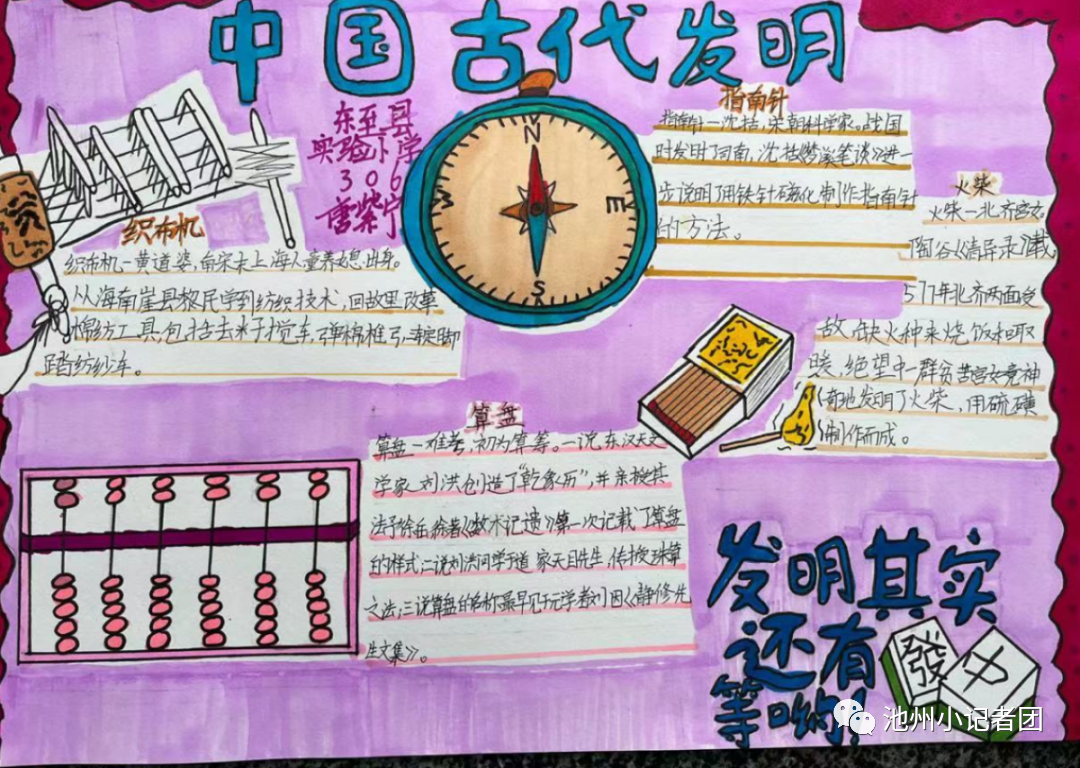 中国古代发明
东至县
实验小学
306
雷紫宁
织布机
织布机—黄道婆，南宋末上海人童养媳出身。
从海南崖县黎民学到纺织技术，回故里改革
棉纺工具，包括去籽搅车，弹棉椎弓，三锭脚
踏纺纱车。
指南针
指南针—沈括，宋朝科学家。战国
时发明了司南，沈括《梦溪笔谈》进一
步说明了用铁针磁化制作指南针
的方法。
火柴
火柴—北齐宫女。
陶谷《清异录》载
577年北齐两面受
敌，缺火种来烧饭和取
暖，绝望中一群贫苦宫女竟神
奇地发明了火柴，用硫磺
制作而成。
算盘
算盘—难考，初为算筹。一说东汉天文
学家刘洪创造了“乾象历”，并亲授其
法予徐岳，徐著《数术记遗》第一次记载了算盘
的样式；二说刘洪问学于道家天目先生，传授珠算
之法，三说算盘的名称最早见于元学者刘因《静修先
生文集》。
发明其实
还有
等哟！
發
中
N
E
S
W
池州小记者团